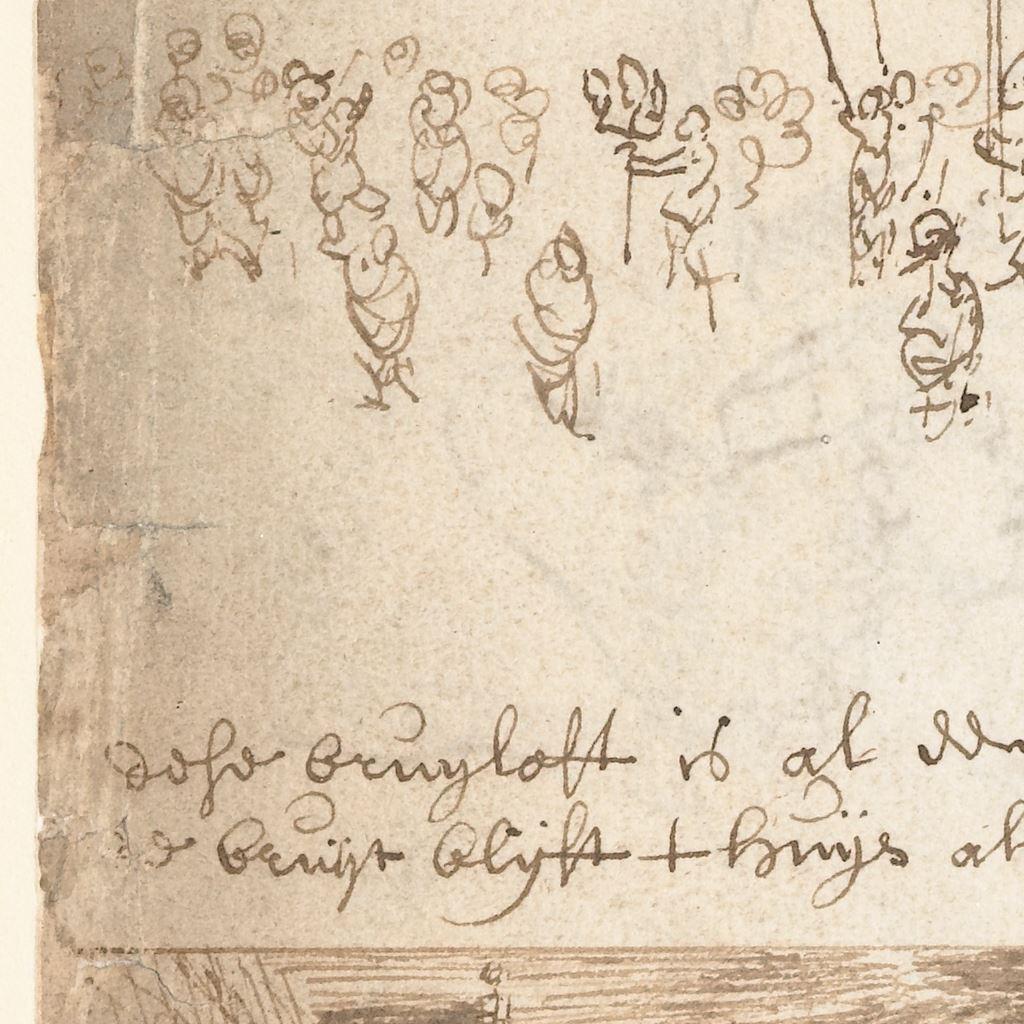 dese bruyloft is al
de bruijt blijft thuijs al